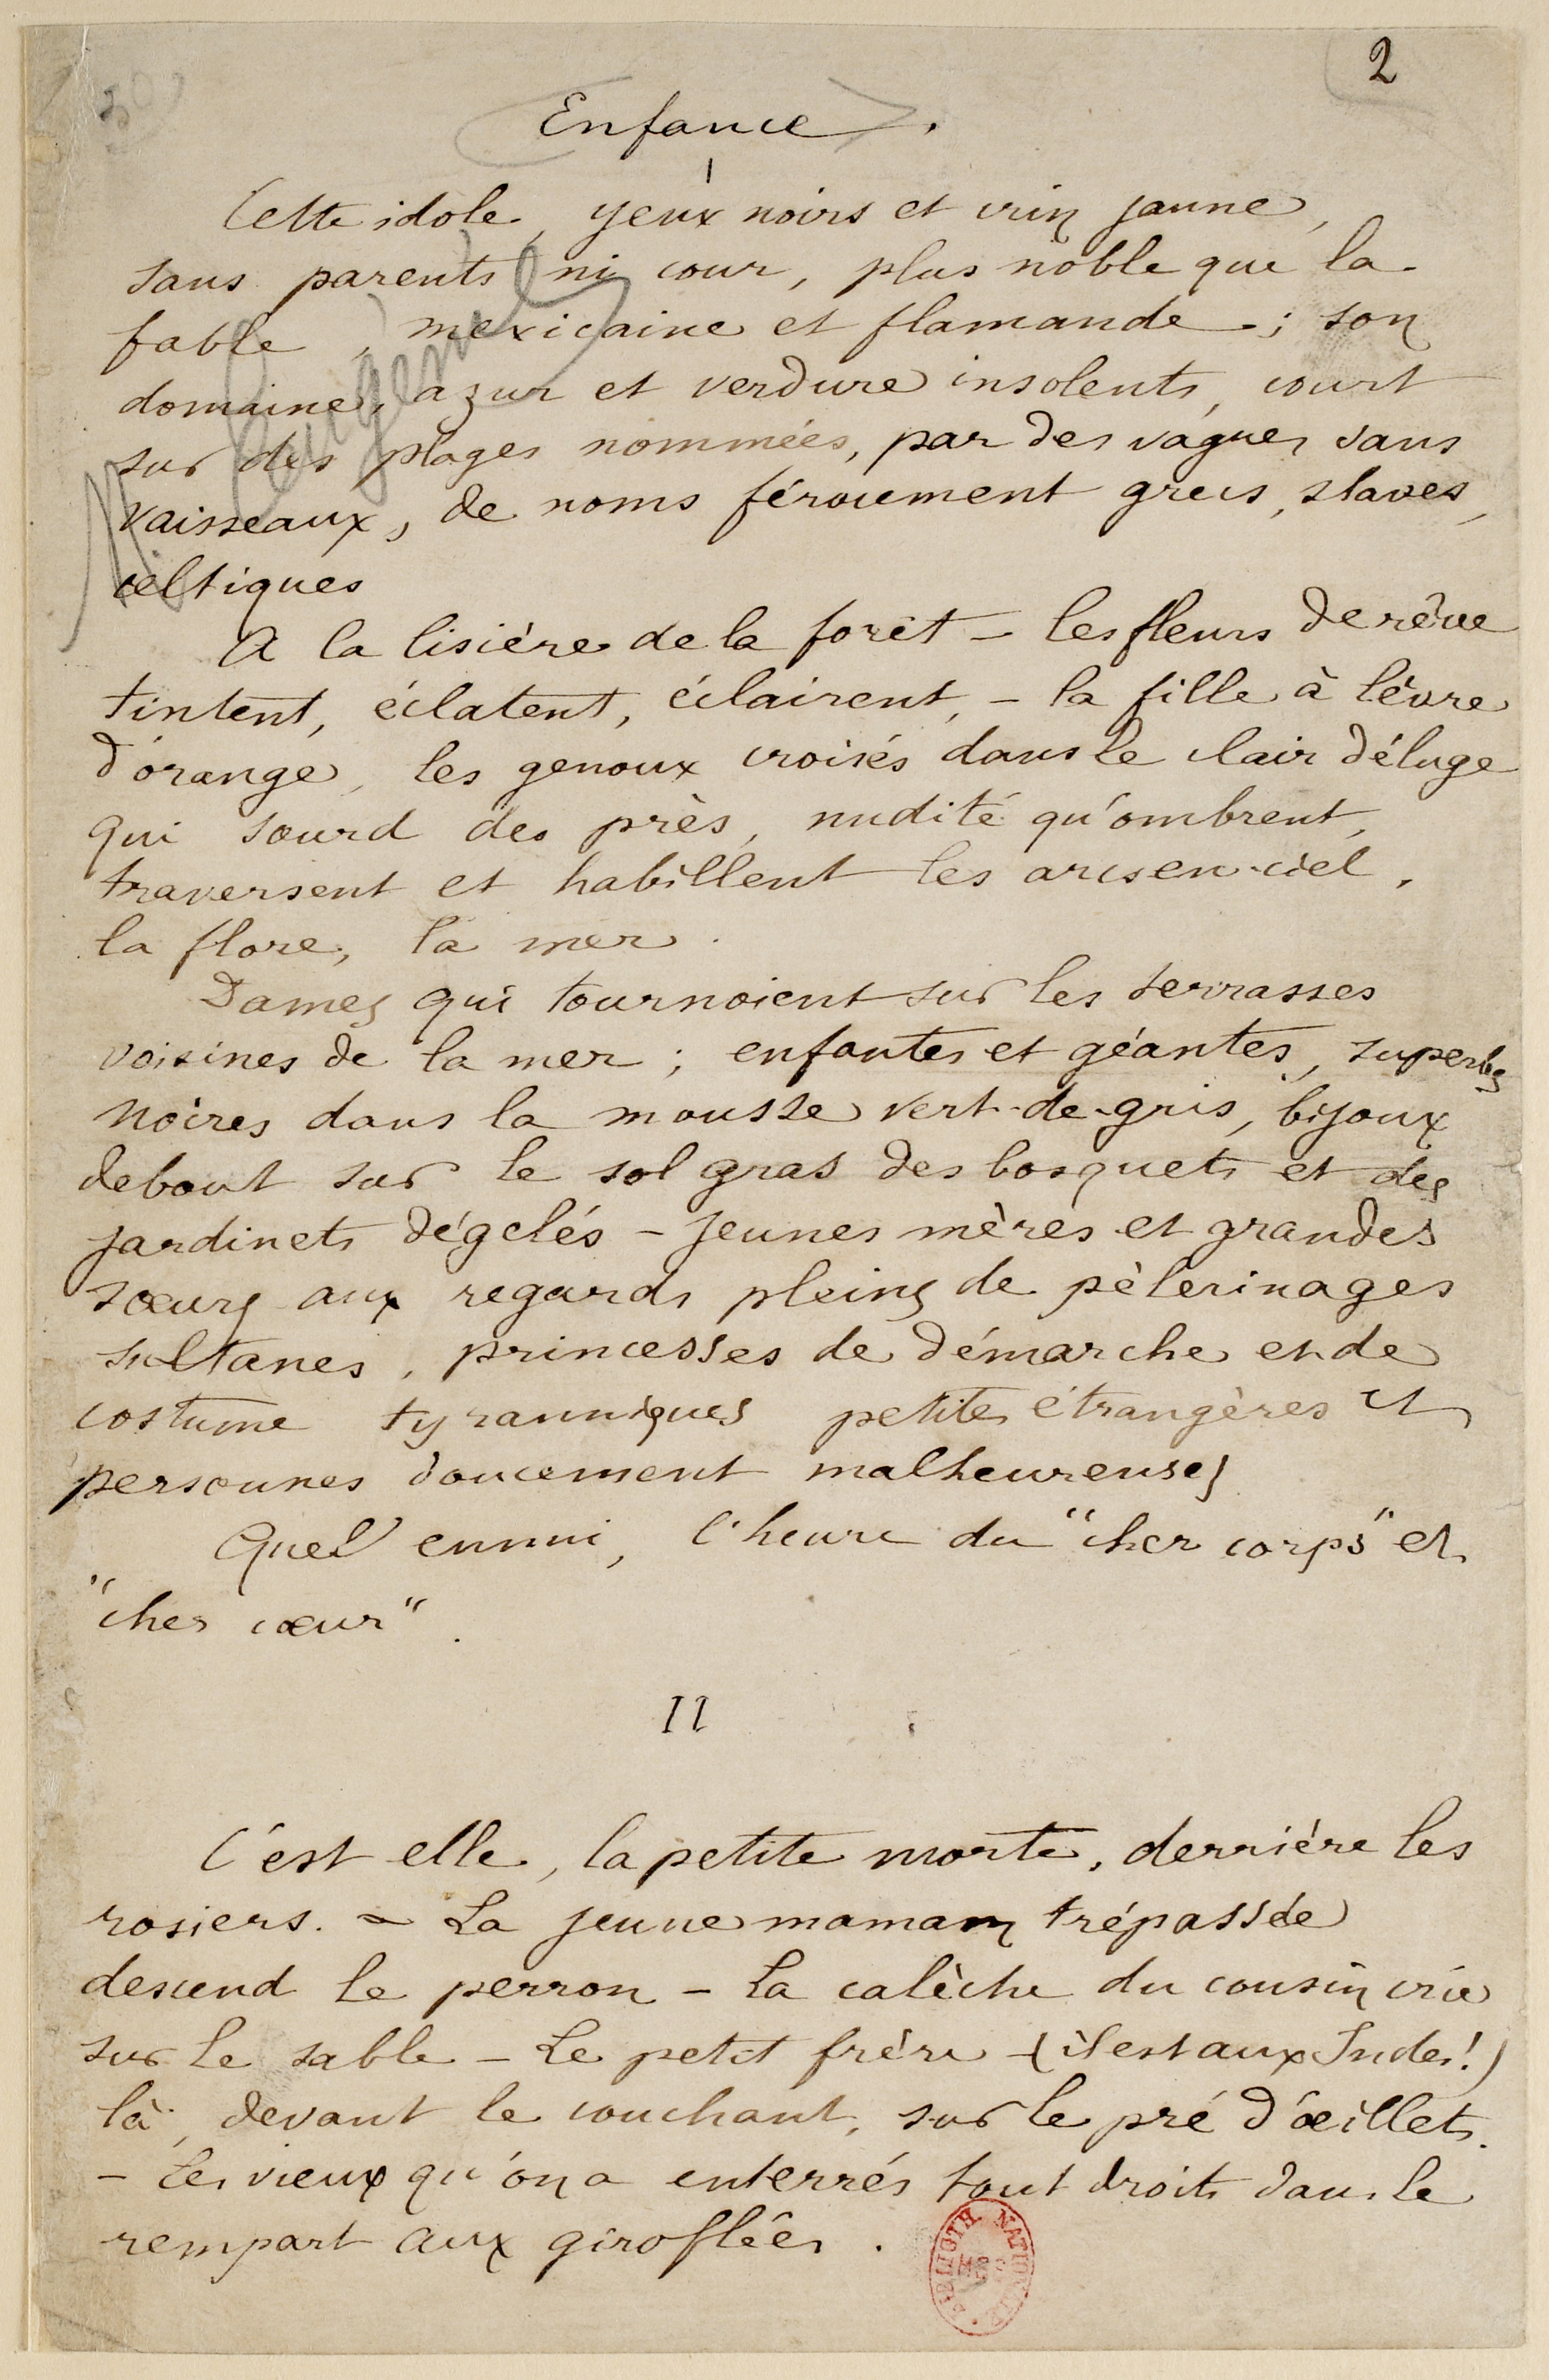 2
Enfance.
I
Cette idole, yeux noirs et crin jaune,
sans parents ni cour, plus noble que la
fable, mexicaine et flamande ; son
domaine, azur et verdure insolents, court
sur des plages nommées, par des vagues sans
vaisseaux, de noms férocement grecs, slaves,
celtiques
A la lisière de la forêt – les fleurs de rêve
tintent, éclatent, éclairent, – la fille à lèvre
d'orange, les genoux croisés dans le clair déluge
qui sourd des près, nudité qu'ombrent,
traversent et habillent les arcs en-ciel,
la flore, la mer.
Dames qui tournoient sur les terrasses
voisines de la mer ; enfantes et géantes, superbes
noires dans la mousse vert-de-gris, bijoux
debout sur le sol gras des bosquets et des
jardinets dégelés – jeunes mères et grandes
sœurs aux regards pleins de pèlerinages
sultanes, princesses de démarche et de
costume tyranniques petites étrangères et
personnes doucement malheureuses
Quel ennui, l'heure du "cher corps" et
"cher cœur".
II
C'est elle, la petite morte, derrière les
rosiers. – La jeune maman trépassée
descend le perron – La calèche du cousin crie
sur le sable – Le petit frère – (il est aux Indes!)
là, devant le couchant, sur le pré d'œillets.
– Les vieux qu'on a enterrés tout droits dans le
rempart aux giroflées.
BIBLIOTH NATIONALE